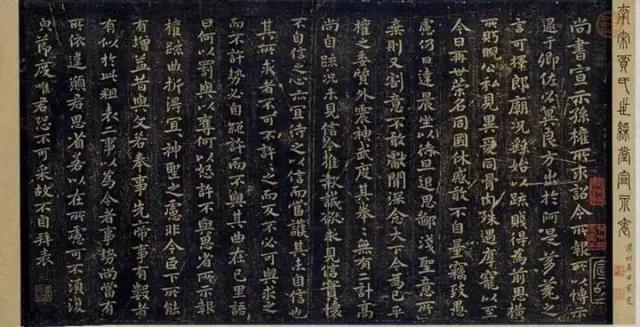 南宋賈氏世綵堂宣示表
尚書宣示孫權所求詔令所報所以博示
逮于卿佐必冀良方出於阿是芻蕘之
言可擇郎廟況繇始以疏賤得為前恩橫
所盱睨公私見異愛同骨肉殊遇厚寵以至
今日再世榮名同國休慼敢不自量竊致愚
慮仍日達晨坐以待旦退思鄙淺聖意所
棄則又割意不敢獻聞深念天下今為已平
權之委質外震神武度其拳=無有二計高
尚自疏況未見信今推款誠欲求見信實懷
不自信之心亦宜待之以信而當護其未自信也
其所求者不可不許許之而反不必可與求之
而不許勢必自絕許而不與其曲在己里語
曰何以罰與以奪何以怒許不與思省所示報
權疏曲折得宜宜神聖之慮非今臣下所能
有增益昔與文若奉事先帝事有數者
有似於此粗表二事以為今者事勢尚當有
所依違願君思省若以在所慮可不須復
皃節度唯君恐不可采故不自拜表